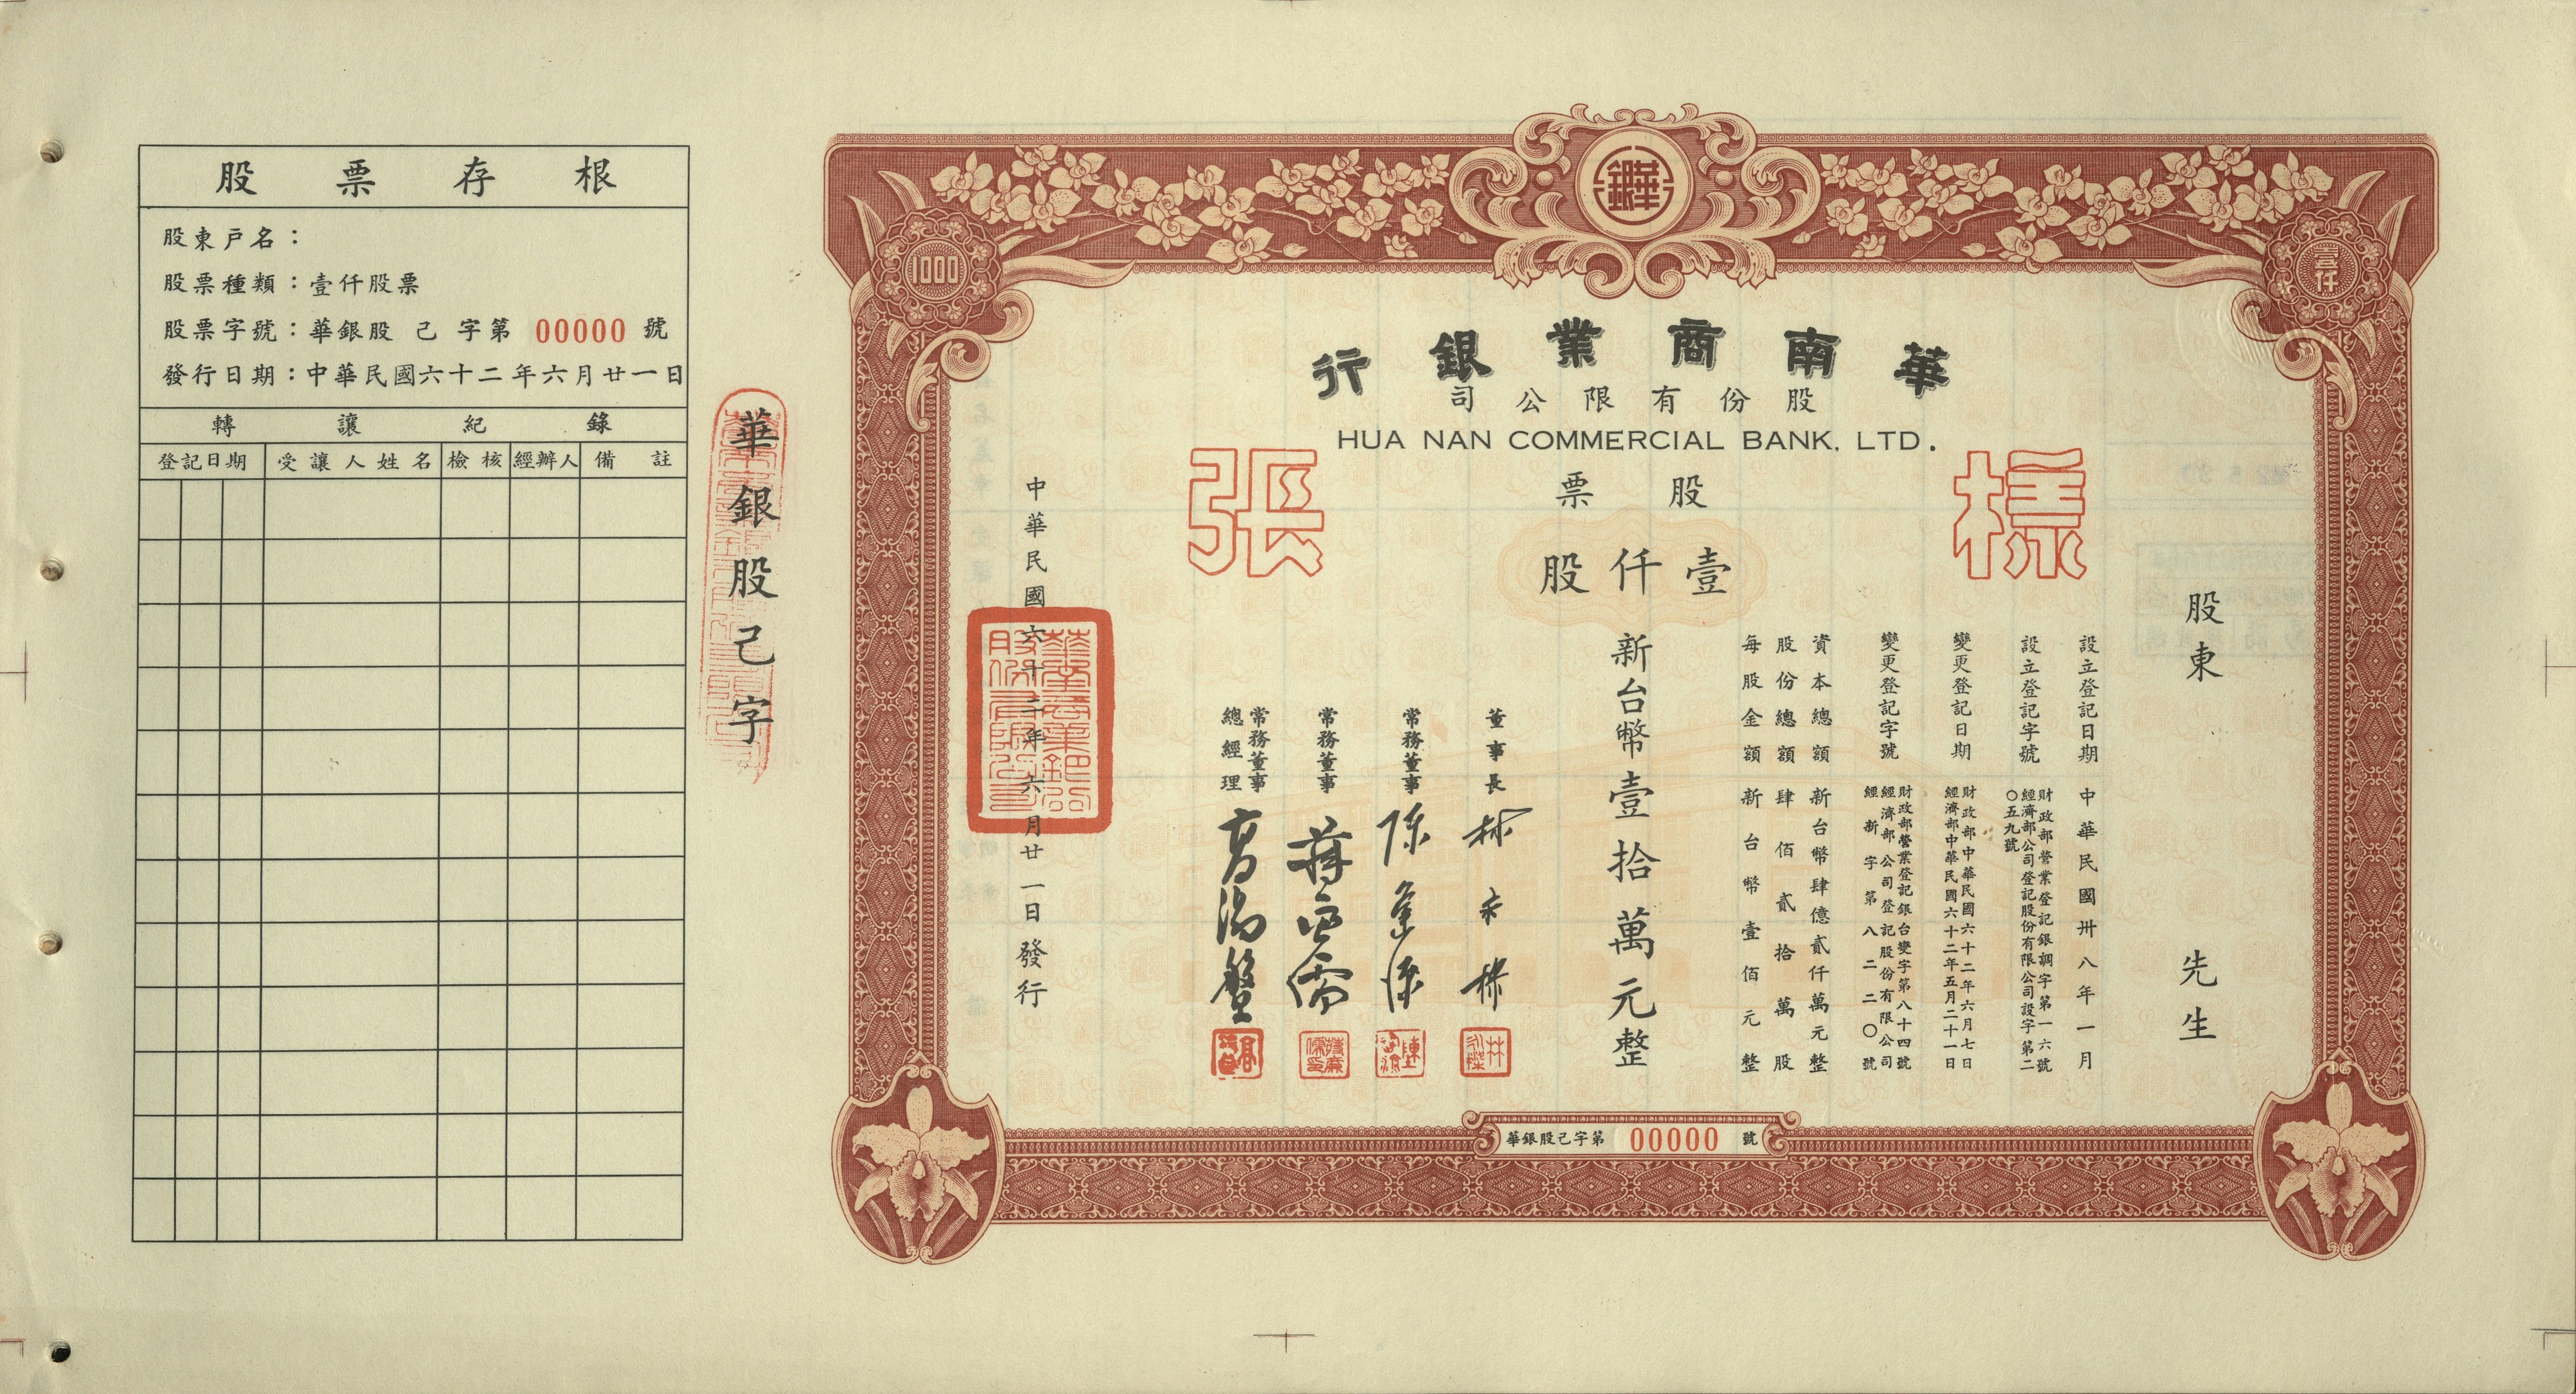 股票存根
股東戶名：
股票種類：壹仟股票
股票字號：華銀股 己 字第 00000 號
發行日期：中華民國六十二年六月廿一日
轉讓紀錄
登記日期 受讓人姓名 檢核 經辦人 備註
華銀股己字
1000
壹仟
華南商業銀行
股份有限公司
HUA NAN COMMERCIAL BANK, LTD.
樣張
股票
壹仟股
股東 先生
設立登記日期 中華民國卅八年一月
設立登記字號 財政部營業登記銀調字第一六號
經濟部公司登記股份有限公司設字第二
〇五九號
變更登記日期 財政部中華民國六十二年六月七日
經濟部中華民國六十二年五月二十一日
變更登記字號 財政部營業登記銀台變字第八十四號
經濟部公司登記股份有限公司
經新字第八二二〇號
資本總額 新台幣肆億貳仟萬元整
股份總額 肆佰貳拾萬股
每股金額 新台幣壹佰元整
新台幣壹拾萬元整
董事長
常務董事
常務董事
常務董事
總經理
中華民國六十二年六月廿一日發行
華銀股己字第 00000 號